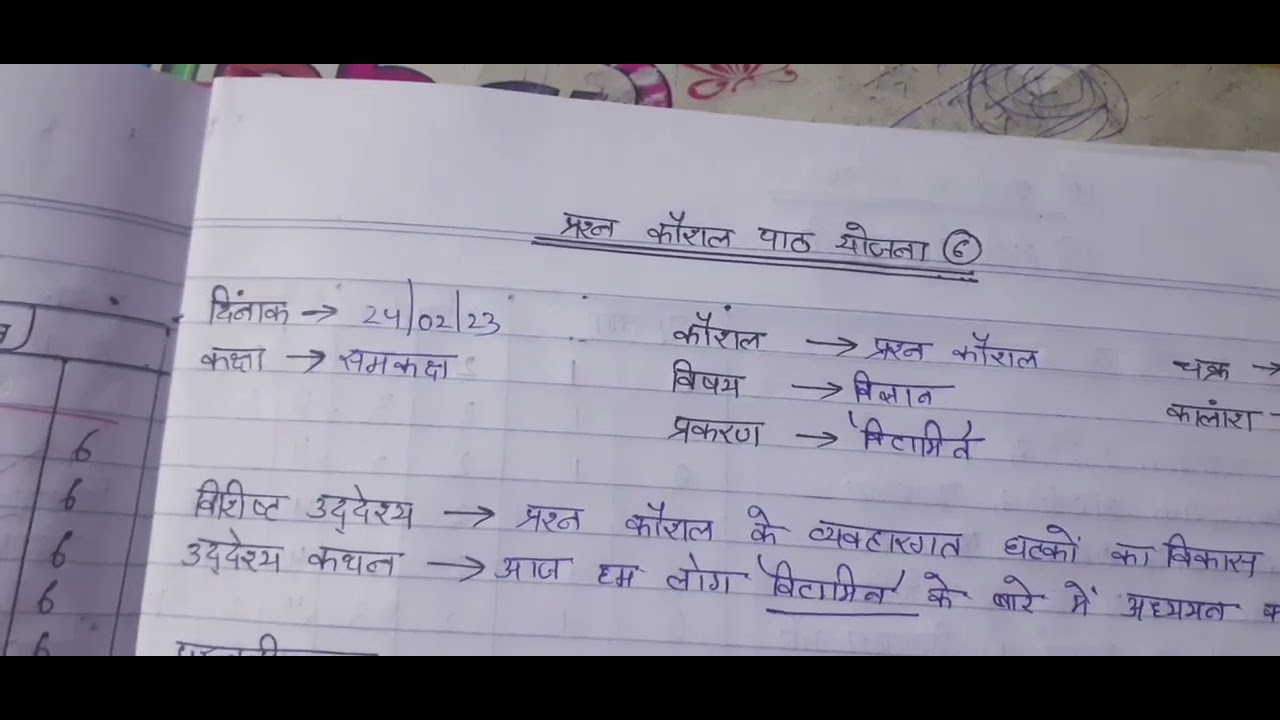 प्रश्न कौशल पाठ योजना ⑥
दिनांक → 24/02/23
कौशल → प्रश्न कौशल
चक्र →
कक्षा → समकक्ष
विषय → विज्ञान
कालांश -
प्रकरण → 'विटामिन'
विशिष्ट उद्देश्य → प्रश्न कौशल के व्यवहारगत घटकों का विकास
उद्देश्य कथन → आज हम लोग 'विटामिन' के बारे में अध्ययन
6
6
6
6
6